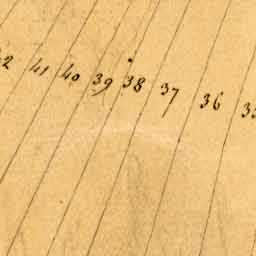 41 40 39 38 37 36